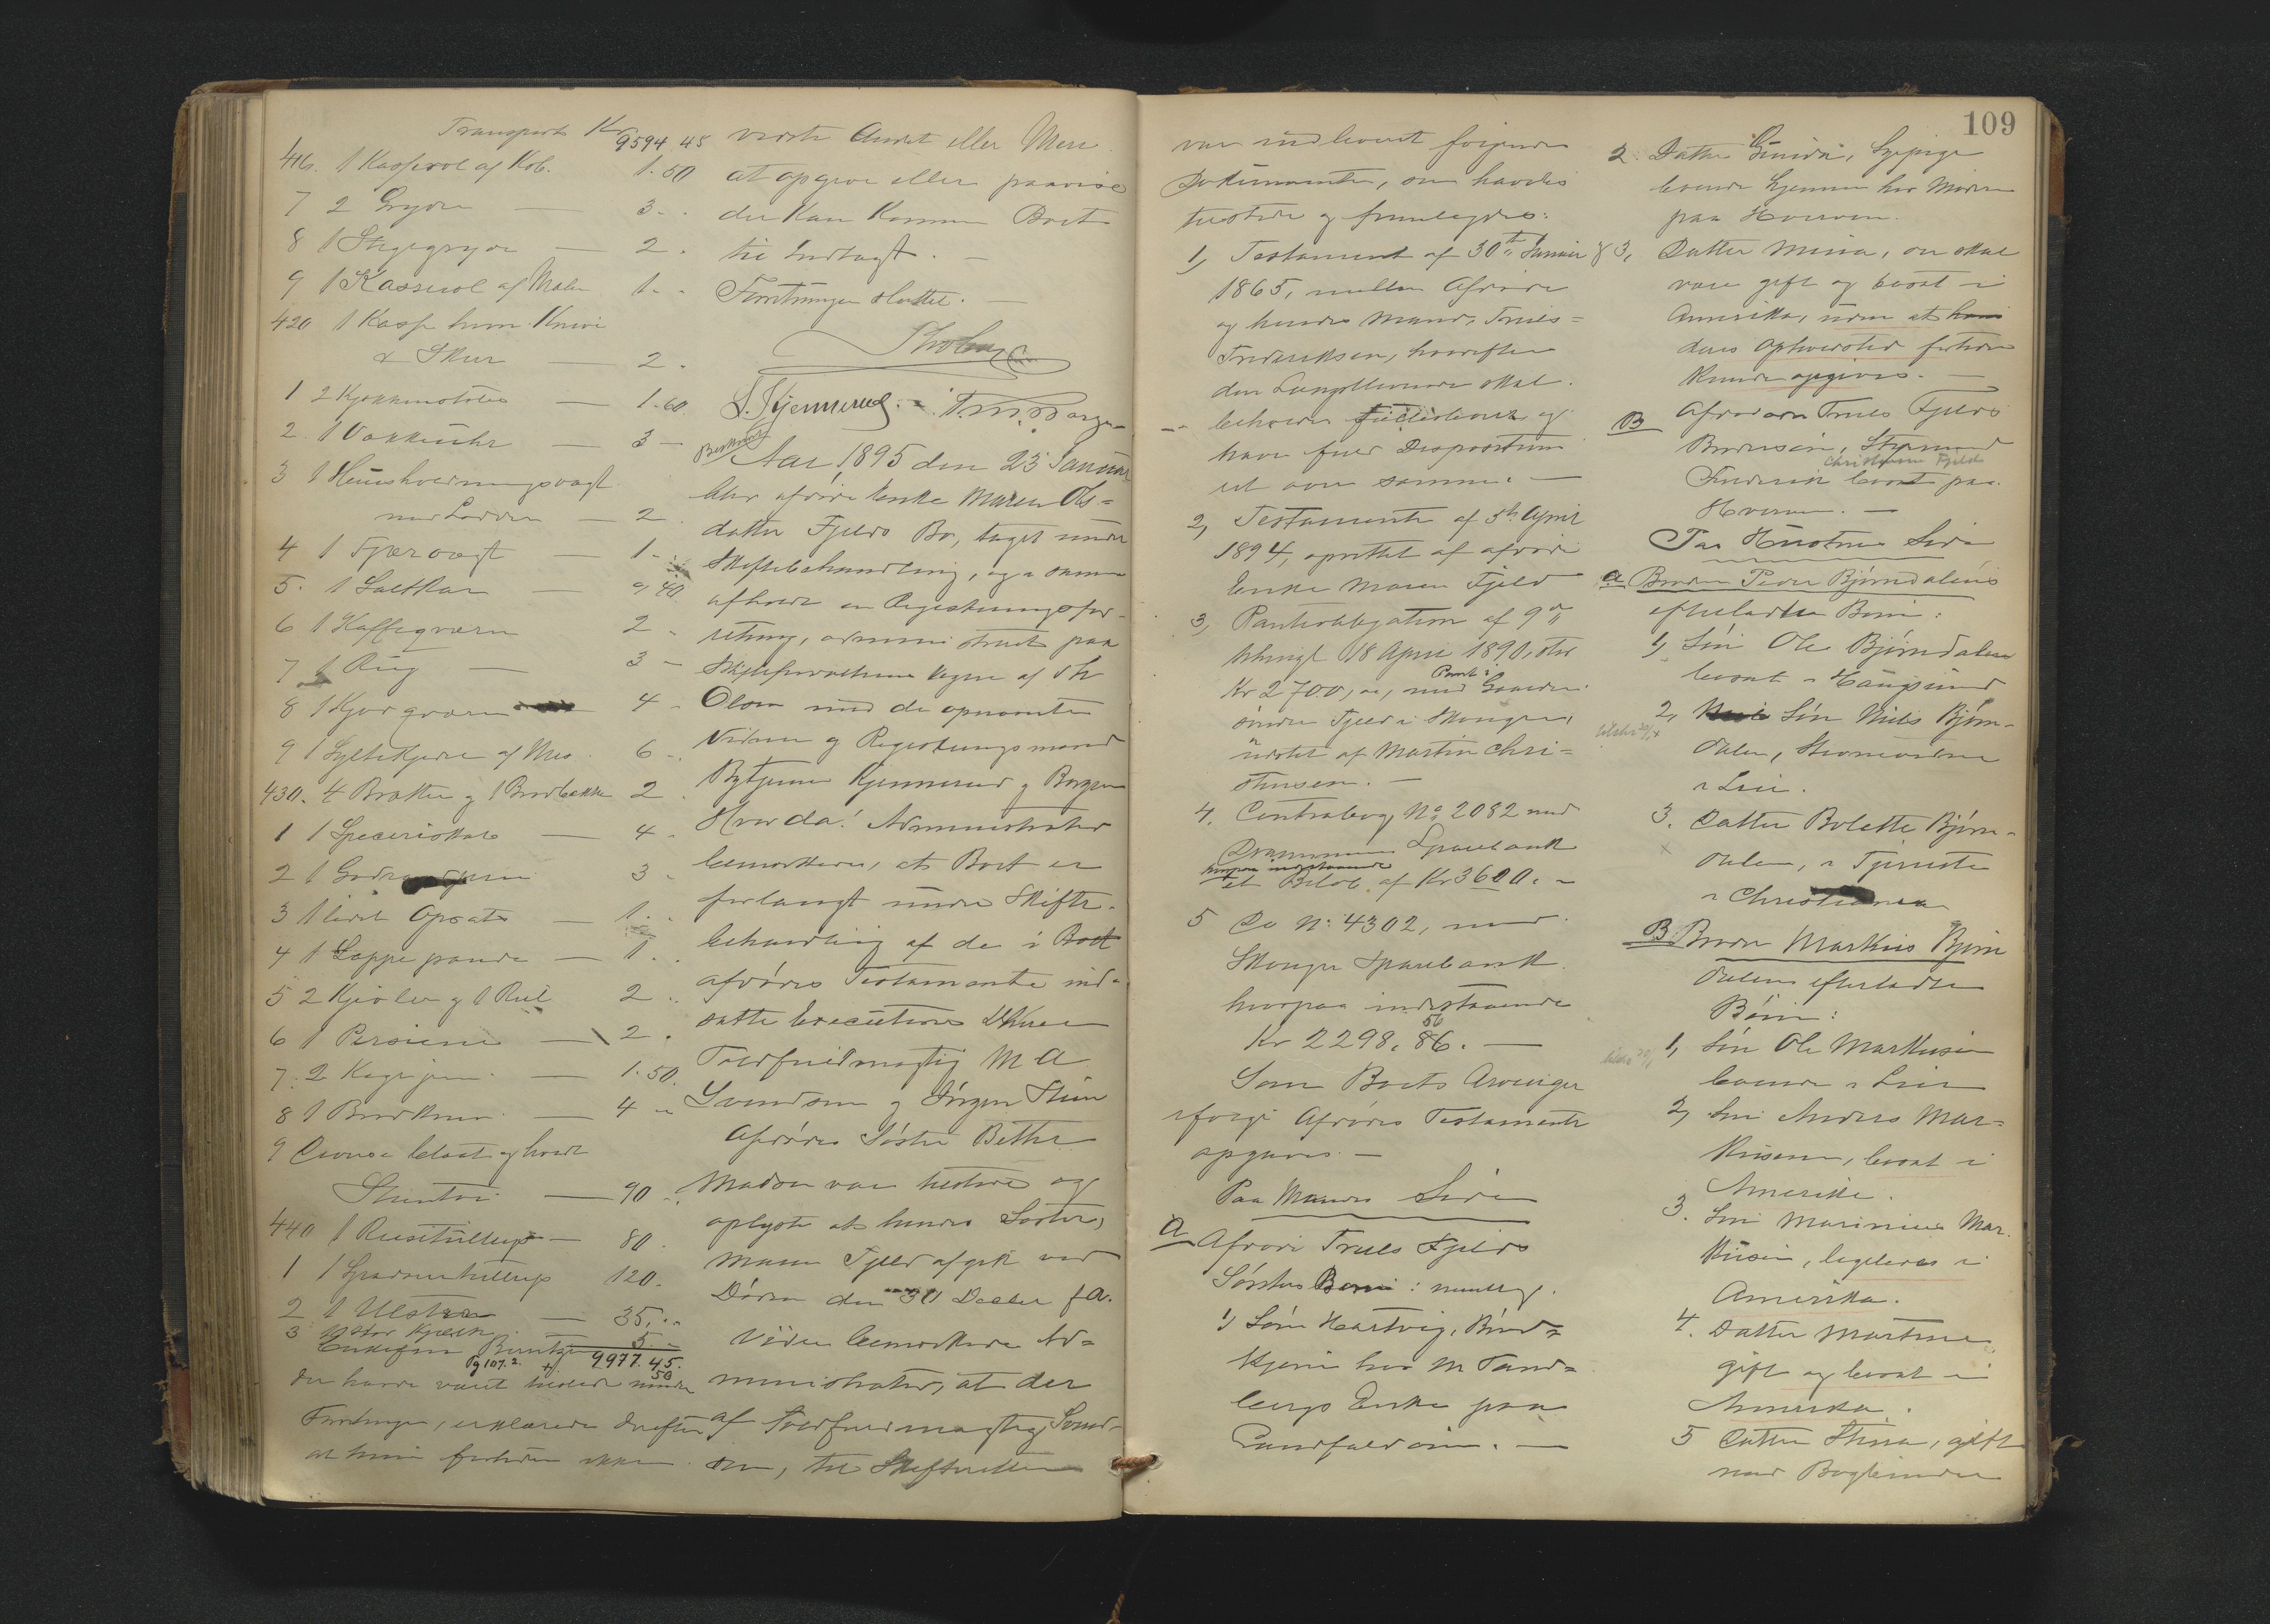 Transport Kr 9594 45
416. 1 Kasserol af Kob. 1.50
7 2 Gryder — 3 -
8 1 Stegegryde — 2 -
9 1 Kasserol af Malm 1 -
420 1 Kasse hvori Knive
& Skeer — 2 -
1 2 Kjøkkenstole — 1.60
2 1 Vækkeuhr — 3 -
3 1 Huusholdningsvægt
med Lodder — 2
4 1 Fjærvægt — 1 -
5. 1 Saltkar — " 40
6 1 Kaffeqværn 2 -
7 1 Rug — 3 -
8 1 Kjødqværn 4 -
9 1 Syltekjedel af Mes. 6 -
430. 4 Bretter og 1 Brødbakke 2
1 1 Speceriskab — 4 -
2 1 3 -
3 1 Opsats — 1 -
4 1 Lappepande — 1 -
5 2 Kjoler og 1 2 -
6 1 Persienne — 2 -
7. 2 Kagejern — 1.50
8 1 Brødkniv — 4 -
9 Diverse
— 90 -
440 1 — 80
1 1 120 -
2 1 Ulster — 35. "
3 1 Stor Kjælk — 5 -
9977. 45.
50
Pg 107. 2.
der havde været tilstede under
Forretningen, erklærede derefter
at hun forhen ikke
vidste Andet eller Mere
at opgive eller paavise
der kan komme Boet
til Indtægt. —
Forretningen sluttet. —
S. Kjennerud. T. M. Borgen
Beskrevet
Aar 1895 den 23 Januar
blev afdøde Enke Maren Ols=
datter Fjelds Bo, taget under
Skiftebehandling, og i samme
afholdt en Registreringsfor-
retning, administreret paa
Skifteforvalterens Vegne af Th
Olsen med de opnævnte
Vidner og Registreringsmænd
Bytjener Kjennerud og Borgen
Hvorda! Administrator
bemærkede, at Boet er
forlangt under Skifte-
behandling af de i Boet
afdødes Testamente ind-
satte Executorer
Toldfuldmægtig M A
Svendsen og Jørgen
Afdødes Søster Bethe
Madsen var tilstede og
oplyste at hendes Søster,
Maren Fjeld afgik ved
Døden den 30 Decbr f A.
Videre bemærkede Ad=
ministrator, at der
af Toldfuldmægtig Svend-
sen, til Skifteretten
109
var indleveret følgende
Dokumenter, som havdes
tilstede og fremlagdes:
1, Testament af 30te Januar
1865, mellem Afdøde
og hendes Mand, Truls=
Frederiksen, hvorefter
den Længstlevende skal
beholde Fælledsboet og
have fuld Disposition
ret over samme. —
2, Testamente af 5te April
1894, oprettet af afdøde
Enke Maren Fjeld
3, Panteobligation af 9de
tinglyst 18 April 1890, stor
Kr 2700, oo, med Pant i Gaarden
søndre Fjeld i Skouger,
udstedt af Martin Chri=
stensen. —
4. Contrabog No 2082 med
Drammens Sparebank
hvorpaa indestaaende
et Beløb af Kr 3600. -
5 Do No 4302, med
Skouger Sparebank
hvorpaa indestaaende
56
Kr 2298. 86. —
Som Boets Arvinger
ifølge Afdødes Testamente
opgaves. —
Paa Mandens Side
A Afdøde Truls Fjelds
Søsters Børn: nemlig.
1) Søn Hartvig,
hos M Tand=
bergs Enke paa
2 Datter Gunda, Sypige
boende hjemme hos Moderen
paa Hvermoen.
3, Datter Mina, der skal
være gift og bosat i
Amerika, uden at
deres Opholdssted forhen
kunde opgives. —
B Afdøde Truls Fjelds
Brodersøn, Styrmand
Christian Fjeld
Frederik bosat paa
Hvermoen. —
Paa Hustruens Side
a Broder Peder Bjørndalens
efterladte Børn:
1, Søn Ole Bjørndalen
bosat i Haugsund
2, Søn Niels Bjørn-
dalen,
i Lier.
3. Datter Bolette Bjørn-
dalen, i Tjeneste
i Christiania
B Broder Markus Bjørn
dalens efterladte
Børn:
1, Søn Ole Markusen
boende i Lier
2, Søn Anders Mar=
kusen, bosat i
Amerika.
3. Søn Marinius Mar-
kusen, ligeledes i
Amerika.
4. Datter Martine
gift og bosat i
Amerika.
5 Datter Stina, gift
med Bogbinder